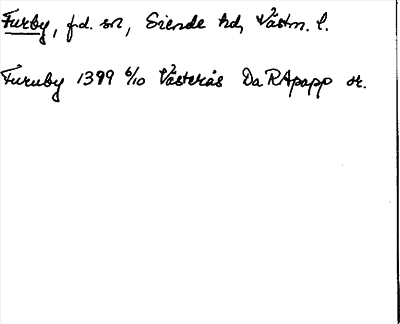 Furby, f.d. sn, Siende hd, Västm. l.
Furuby 1399 6/10 Västerås DaRApapp or.